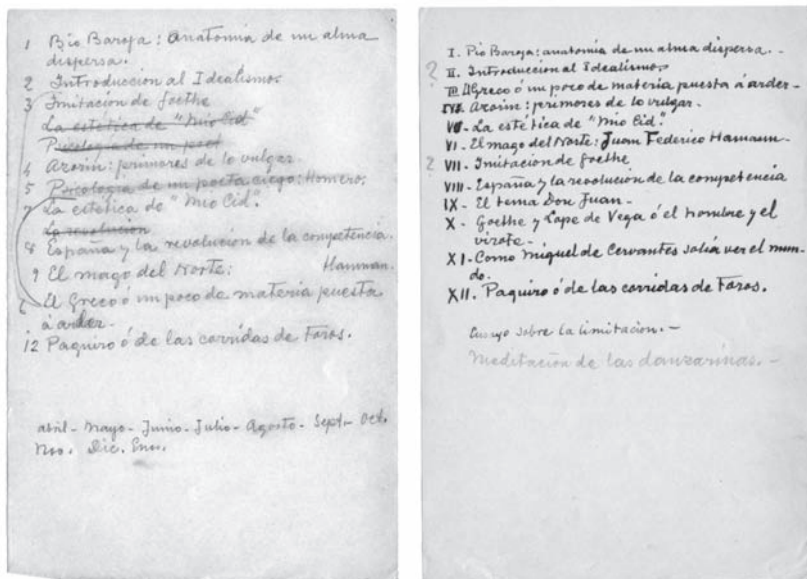 1 Pío Baroja: anatomía de un alma
dispersa.
2 Introducción al Idealismo.
3 Imitación de Goethe
La estética de "Mio Cid"
Psicología de un poet
4 Azorín: primores de lo vulgar.
5 Psicología de un poeta ciego: Homero.
7 La estética de "Mio Cid".
La revolución
8 España y la revolución de la competencia.
9 El mago del Norte: Hamman.
6 El Greco ó un poco de materia puesta
á arder.
12 Paquiro ó de las corridas de Toros.
abril - Mayo - Junio - Julio - Agosto - Sept. - Oct.
Nov. Dic. En.
I. Pío Baroja: anatomía de un alma dispersa. -
? II. Introducción al Idealismo
III El Greco ó un poco de materia puesta á arder -
IV. Azorín: primores de lo vulgar.
V - La estética de "Mio Cid".
VI. El mago del Norte: Juan Federico Hamann -
? VII. Imitación de Goethe
VIII - España y la revolución de la competencia
IX - El tema Don Juan -
X - Goethe y Lope de Vega ó el hombre y el
virote -
XI - Como Miguel de Cervantes solía ver el mun-
do.
XII. Paquiro ó de las corridas de Toros.
Ensayo sobre la limitación. -
Meditación de las danzarinas. -